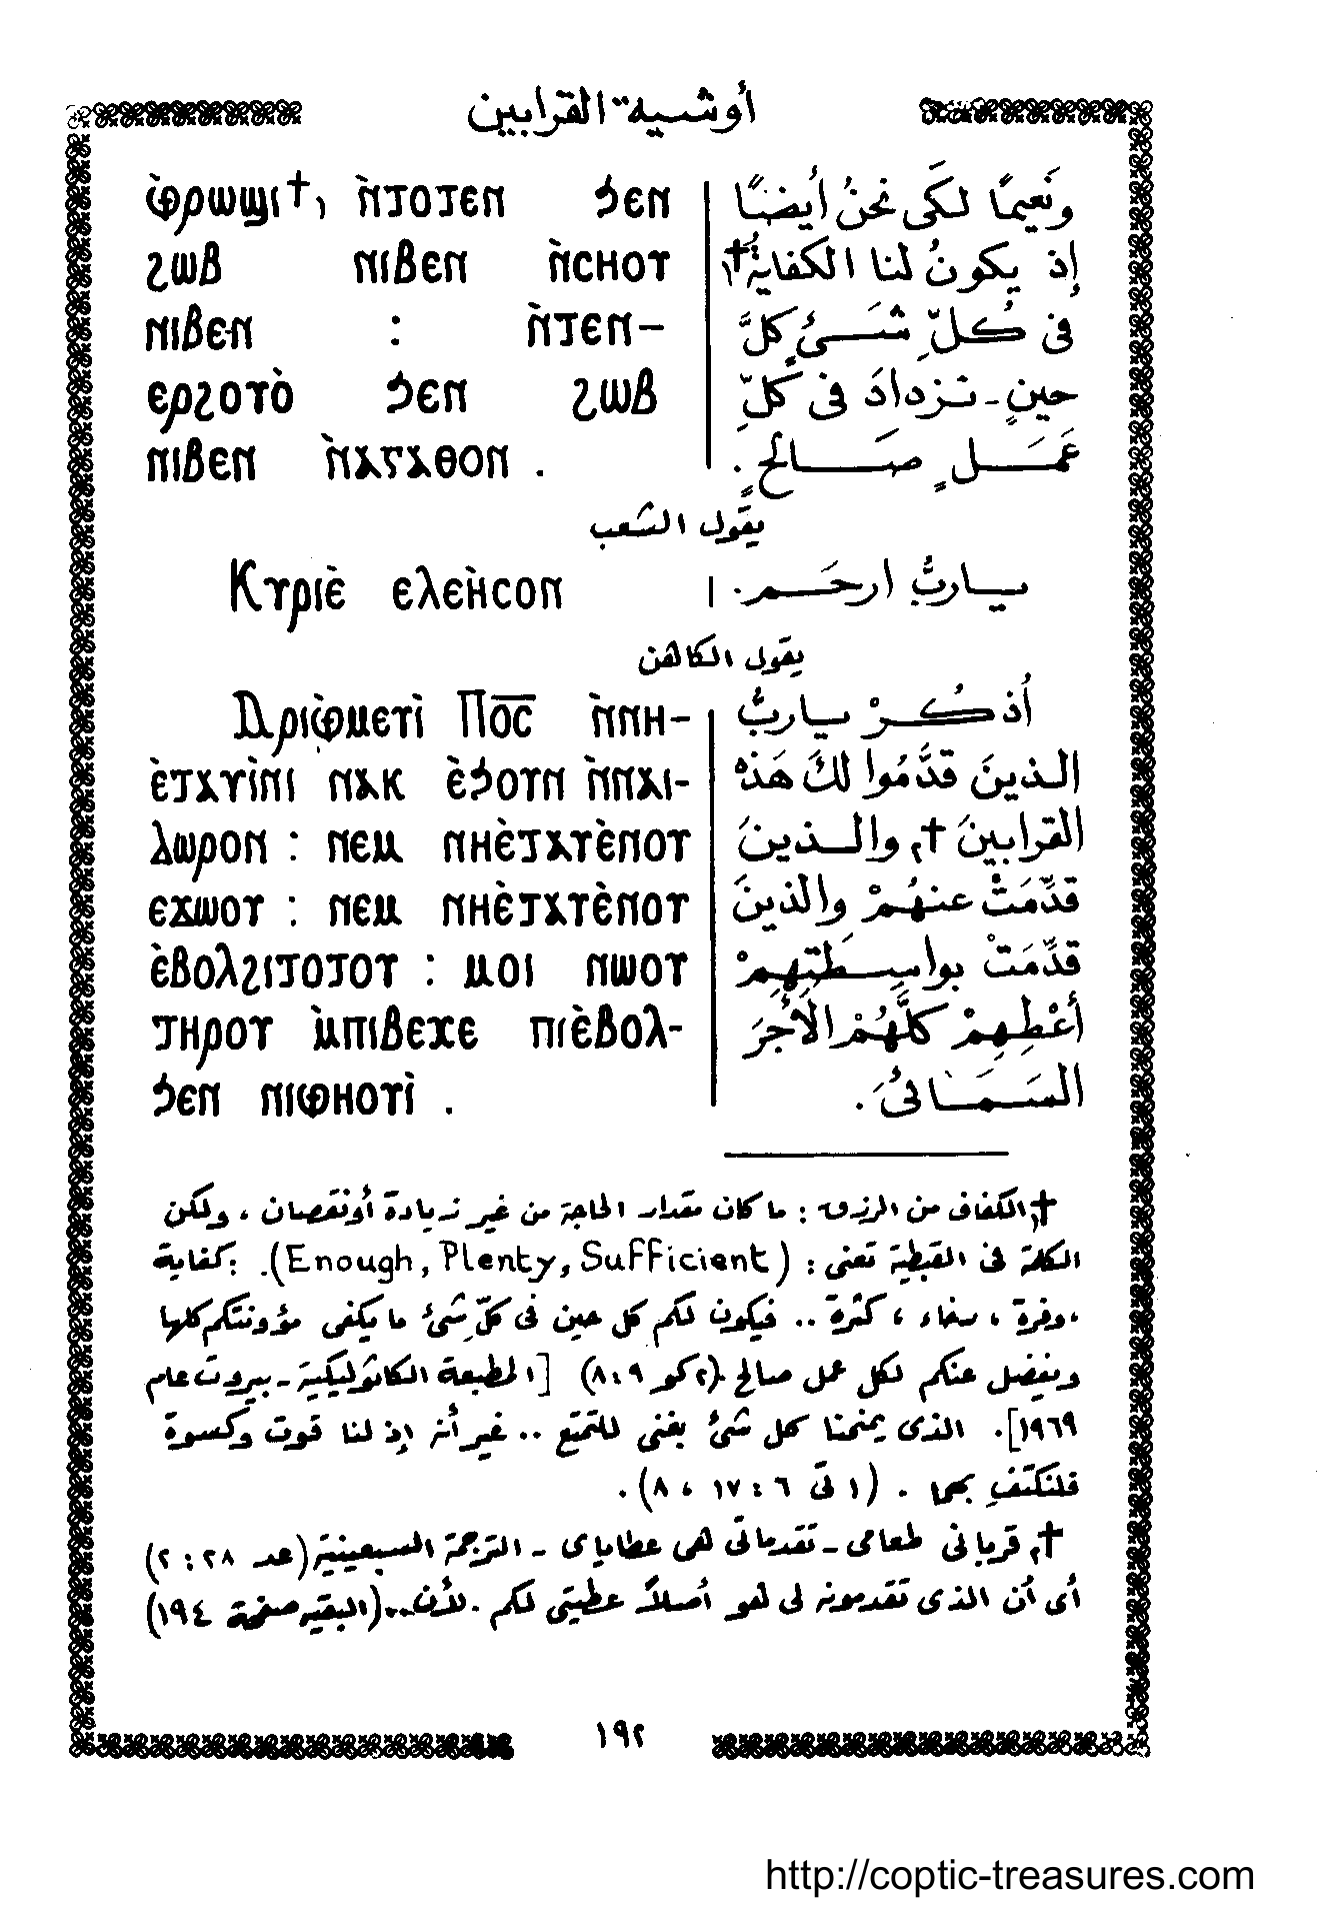 أوشية القرابين
ⲫ̀ⲣⲱϣⲓ †١ ⲛ̀ⲧⲟⲧⲉⲛ ϧⲉⲛ
ϩⲱⲃ ⲛⲓⲃⲉⲛ ⲛ̀ⲥⲏⲟⲩ
ⲛⲓⲃⲉⲛ : ⲛ̀ⲧⲉⲛ-
ⲉⲣϩⲟⲩⲟ̀ ϧⲉⲛ ϩⲱⲃ
ⲛⲓⲃⲉⲛ ⲛ̀ⲁⲅⲁⲑⲟⲛ .
ونَعيمًا لكَى نحنُ أيضًا
إذ يكونُ لنا الكفايةُ †١
فى كُلِّ شَىءٍ كلَّ
حينٍ - نزدادَ فى كلِّ
عَمَلٍ صَالحٍ .
يقول الشعب
Ⲕⲩⲣⲓⲉ̀ ⲉⲗⲉⲏ̀ⲥⲟⲛ
ياربُّ ارحَم .
يقول الكاهن
Ⲁⲣⲓⲫ̀ⲙⲉⲩⲓ̀ Ⲡⲟ̅ⲥ̅ ⲛ̀ⲛⲏ-
ⲉ̀ⲧⲁⲩⲓ̀ⲛⲓ ⲛⲁⲕ ⲉ̀ϧⲟⲩⲛ ⲛ̀ⲛⲁⲓ-
ⲇⲱⲣⲟⲛ : ⲛⲉⲙ ⲛⲏⲉ̀ⲧⲁⲩⲉ̀ⲛⲟⲩ
ⲉϫⲱⲟⲩ : ⲛⲉⲙ ⲛⲏⲉ̀ⲧⲁⲩⲉ̀ⲛⲟⲩ
ⲉ̀ⲃⲟⲗϩⲓⲧⲟⲧⲟⲩ : ⲙⲟⲓ ⲛⲱⲟⲩ
ⲧⲏⲣⲟⲩ ⲙ̀ⲡⲓⲃⲉⲭⲉ ⲡⲓⲉ̀ⲃⲟⲗ-
ϧⲉⲛ ⲛⲓⲫⲏⲟⲩⲓ̀ .
أُذكُرْ ياربُّ
الذينَ قدَّمُوا لكَ هَذه
القرابينَ †٢ والذينَ
قدِّمَتْ عنهُمْ والذينَ
قدِّمَتْ بواسِطَتِهِمْ
أعْطِهِمْ كلَّهُمْ الأَجْرَ
السَمَائىُ .
†١ الكفاف من الرزق : ما كان مقدار الحاجة من غير زيادة أو نقصان ، ولكن
الكلمة فى القبطية تعنى : (Enough, Plenty, Sufficient). : كفاية
، وفرة ، سخاء ، كثرة .. فيكون لكم كل حين فى كلّ شىء ما يكفى مؤونتكم كلها
ويفضل عنكم لكل عمل صالح . (٢كو ٩ : ٨) [المطبعة الكاثوليكية - بيروت عام
١٩٦٩]. الذى يمنحنا كل شىء بغنى للتمتع .. غير أنه إذ لنا قوت وكسوة
فلنكتفِ بهما . (١ تى ٦ : ١٧ ، ٨) .
†٢ قربانى طعامى - تقدماتى هى عطاياى - الترجمة السبعينية (عد ٢٨ : ٢)
أى أن الذى تقدمونه لى هو أصلاً عطيتى لكم . لأن .. (البقيه صفحة ١٩٤)
١٩٢
http://coptic-treasures.com